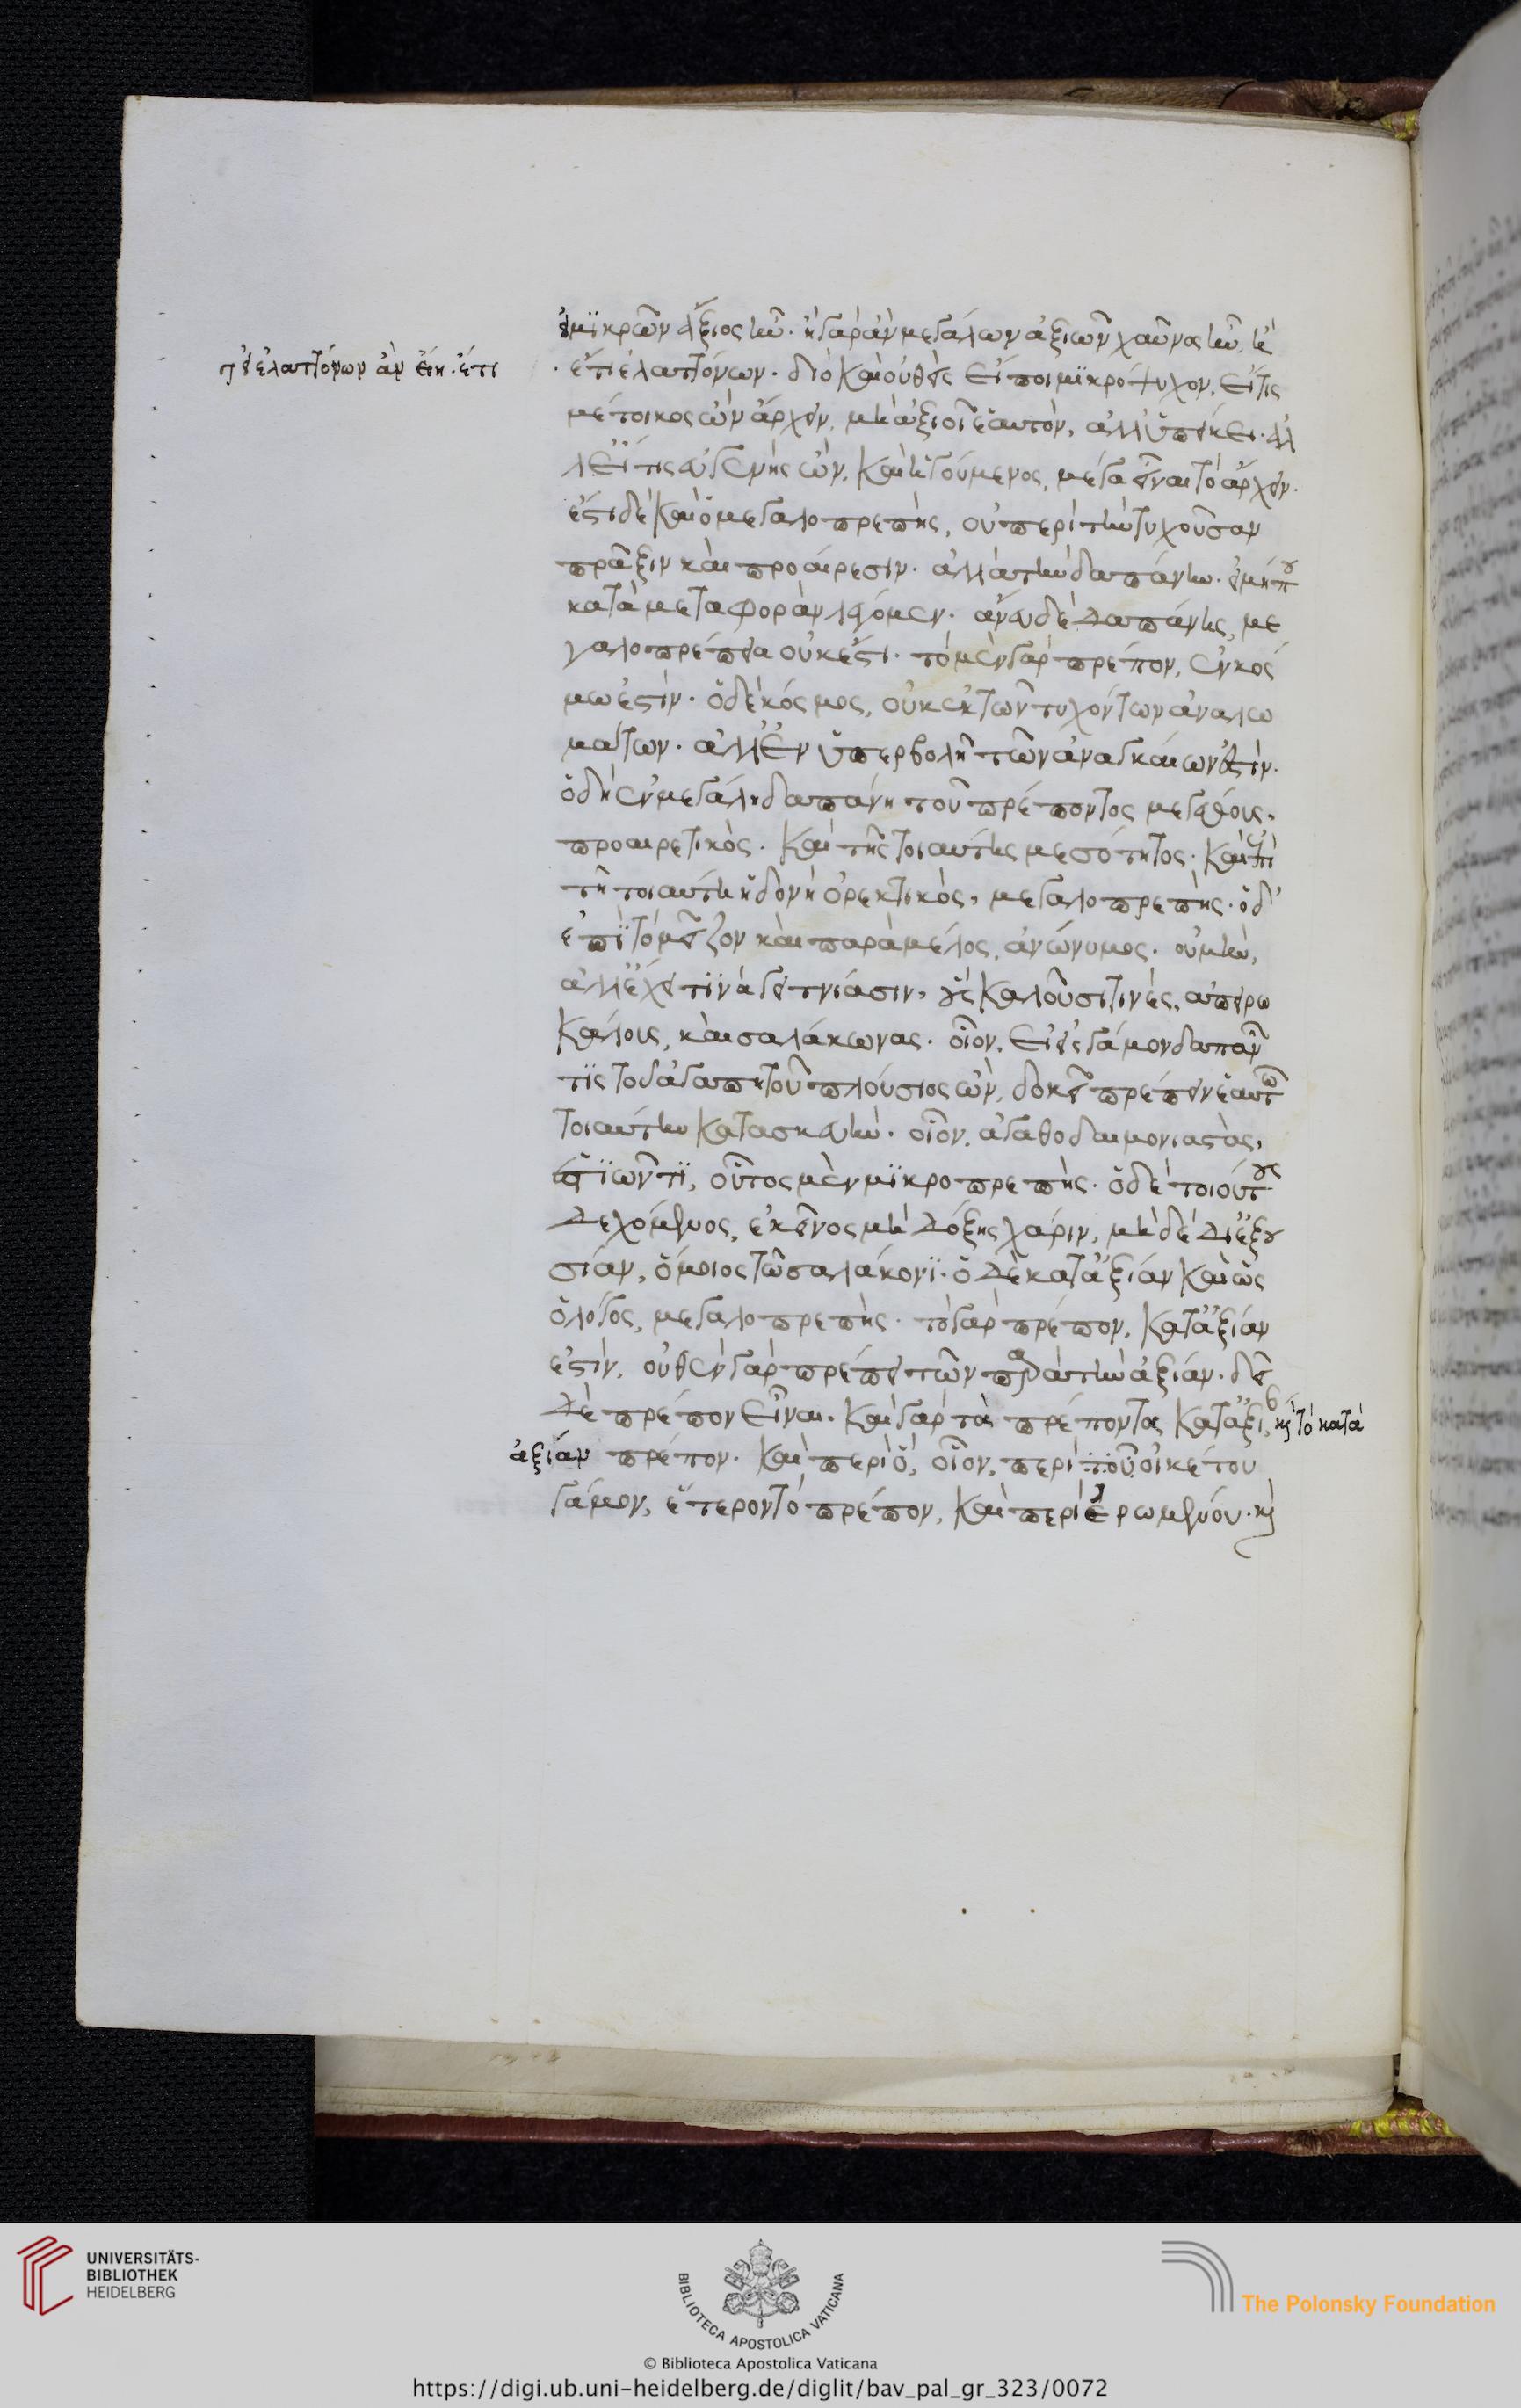 εἰ ἐλαττόνων ἂν εἴη· ἔτι
εἰ μϊκρῶν ἄξιος ἦν· ἢ γὰρ ἂν μεγάλων ἀξιῶν χαῦνος ἦν, ἢ
ἔτι ἐλαττόνων· διὸ καὶ οὐθεὶς εἴποι μϊκρόψυχον, εἴ τις
μέτοικος ὢν ἄρχειν, μὴ ἀξιοῖ ἑαυτὸν, ἀλλ' ὑπείκει· ἀλ
λ' εἴ τις εὐγενὴς ὢν, καὶ ἡγούμενος, μέγα εἶναι τὸ ἄρχειν.
ἔστι δὲ καὶ ὁ μεγαλοπρεπὴς, οὐ περὶ τὴν τυχοῦσαν
πρᾶξιν καὶ προαίρεσιν· ἀλλὰ τὴν δαπάνην· εἰ μή που
κατὰ μεταφορὰν λέγομεν· ἄνευ δὲ δαπάνης, με
γαλοπρέπεια οὐκ ἔστι· τὸ μὲν γὰρ πρέπον, ἐν κόσ
μω ἐστίν· ὁ δὲ κόσμος, οὐκ ἐκ τῶν τυχόντων ἀναλω
μάτων· ἀλλ' ἐν ὑπερβολῆ τῶν ἀναγκαίων ἐστίν.
ὁ δὴ ἐν μεγάλη δαπάνη τοῦ πρέποντος μεγέθους,
προαιρετικὸς· καὶ τῆς τοιαύτης μεσότητος· καὶ ἐπὶ
τῆ τοιαύτη ἡδονῆ ὀρεκτικὸς, μεγαλοπρεπὴς· ὁ δ'
ἐπὶ τὸ μεῖζον καὶ παρὰ μέλος, ἀνώνυμος· οὐ μὴν,
ἀλλ' ἔχει τϊνὰ γειτνίασιν, οὓς καλοῦσι τινὲς, ἀπειρω
κάλους, καὶ σαλάκωνας· οἷον, εἰ εἰς γάμον δαπανῶν
τϊς τοῦ ἀγαπητοῦ πλούσιος ὢν, δοκεῖ πρέπειν ἑαυτῶ
τοιαύτην κατασκευὴν· οἷον, ἀγαθοδαιμονιαστὰς,
ἑστϊῶντϊ, οὗτος μὲν μϊκροπρεπὴς· ὁ δὲ τοιούτους
δεχόμενος, ἐκεῖνος μὴ δόξης χάριν, μὴ δὲ δι' ἐξου
σίαν, ὅμοιος τῶ σαλάκονϊ· ὁ δὲ κατ' ἀξίαν καὶ ὡς
ὁ λόγος, μεγαλοπρεπὴς· τὸ γὰρ πρέπον, κατ' ἀξίαν
ἐστὶν, οὐθὲν γὰρ πρέπει τῶν παρὰ τὴν ἀξίαν· δεῖ
δὲ πρέπον εἶναι· καὶ γὰρ τὰ πρέποντα κατ' ἀξί, καὶ τὸ κατὰ
ἀξίαν πρέπον· καὶ περὶ ὃ, οἷον, περὶ τοῦ οἰκέτου
γάμον, ἕτερον τὸ πρέπον, καὶ περὶ ἐρωμένου· καὶ
UNIVERSITÄTS-
BIBLIOTHEK
HEIDELBERG
BIBLIOTECA APOSTOLICA VATICANA
The Polonsky Foundation
© Biblioteca Apostolica Vaticana
https://digi.ub.uni-heidelberg.de/diglit/bav_pal_gr_323/0072